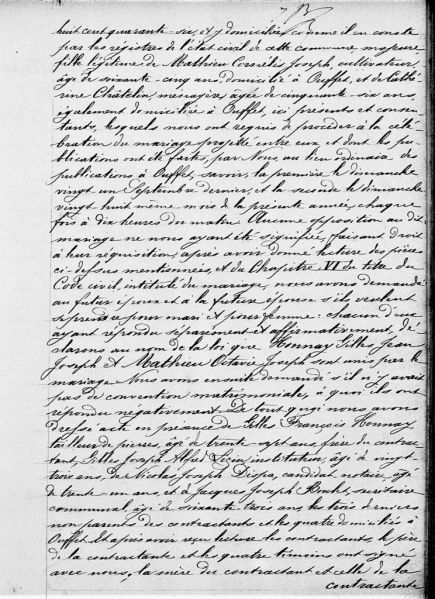 huit cent quarante-six, et y domiciliée, comme il en conste
par les régistres de l'état civil de cette commune, majeure
fille légitime de Mathieu Corneil Joseph, cultivateur,
âgé de soixante-cinq ans, domicilié à Ouffet, et de Cathé-
rine Châtelin, ménagère, âgée de cinquante-six ans,
également domiciliée à Ouffet, ici présents et consen-
tants, lesquels nous ont requis de procéder à la célé-
bration du mariage projetté entre eux et dont les pu-
blications ont été faites, par Nous, au lieu ordinaire des
publications à Ouffet, savoir: la première le dimanche
vingt un Septembre dernier, et la seconde le dimanche
vingt huit même mois de la présente année, chaque
fois à dix heures du matin. Aucune opposition au dit
mariage ne nous ayant été signifiée, faisant droit
à leur réquisition, après avoir donné lecture des pièces
ci-dessus mentionnées, et du Chapitre VI du titre du
Code civil, intitulé du mariage, nous avons demandé
au futur époux et à la future épouse s'ils veulent
se prendre pour mari et pour femme: chacun d'eux
ayant répondu séparément et affirmativement, dé-
clarons au nom de la loi que Honnay Gilles Jean
Joseph et Mathieu Octavie Joseph sont unis par le
mariage. Nous avons ensuite demandé s'il n'y avait
pas de convention matrimoniale, à quoi ils ont
répondu négativement. De tout quoi nous avons
dressé acte en présence de Gilles François Honnay
tailleur de pierres, âgé de trente-sept ans, frère du contrac-
tant, Gilles Joseph Alfred instituteur, âgé de vingt
trois ans, de Nicolas Joseph Dispa, candidat notaire, âgé
de trente un ans, et de Jacques Joseph secrétaire
communal, âgé de soixante trois ans, les trois derniers
non parents des contractants et les quatre domiciliés à
Ouffet. Et après avoir reçu lecture les contractants, le père
de la contractante et les quatre témoins ont signé
avec nous, la mère du contractant et celle de la
contractante